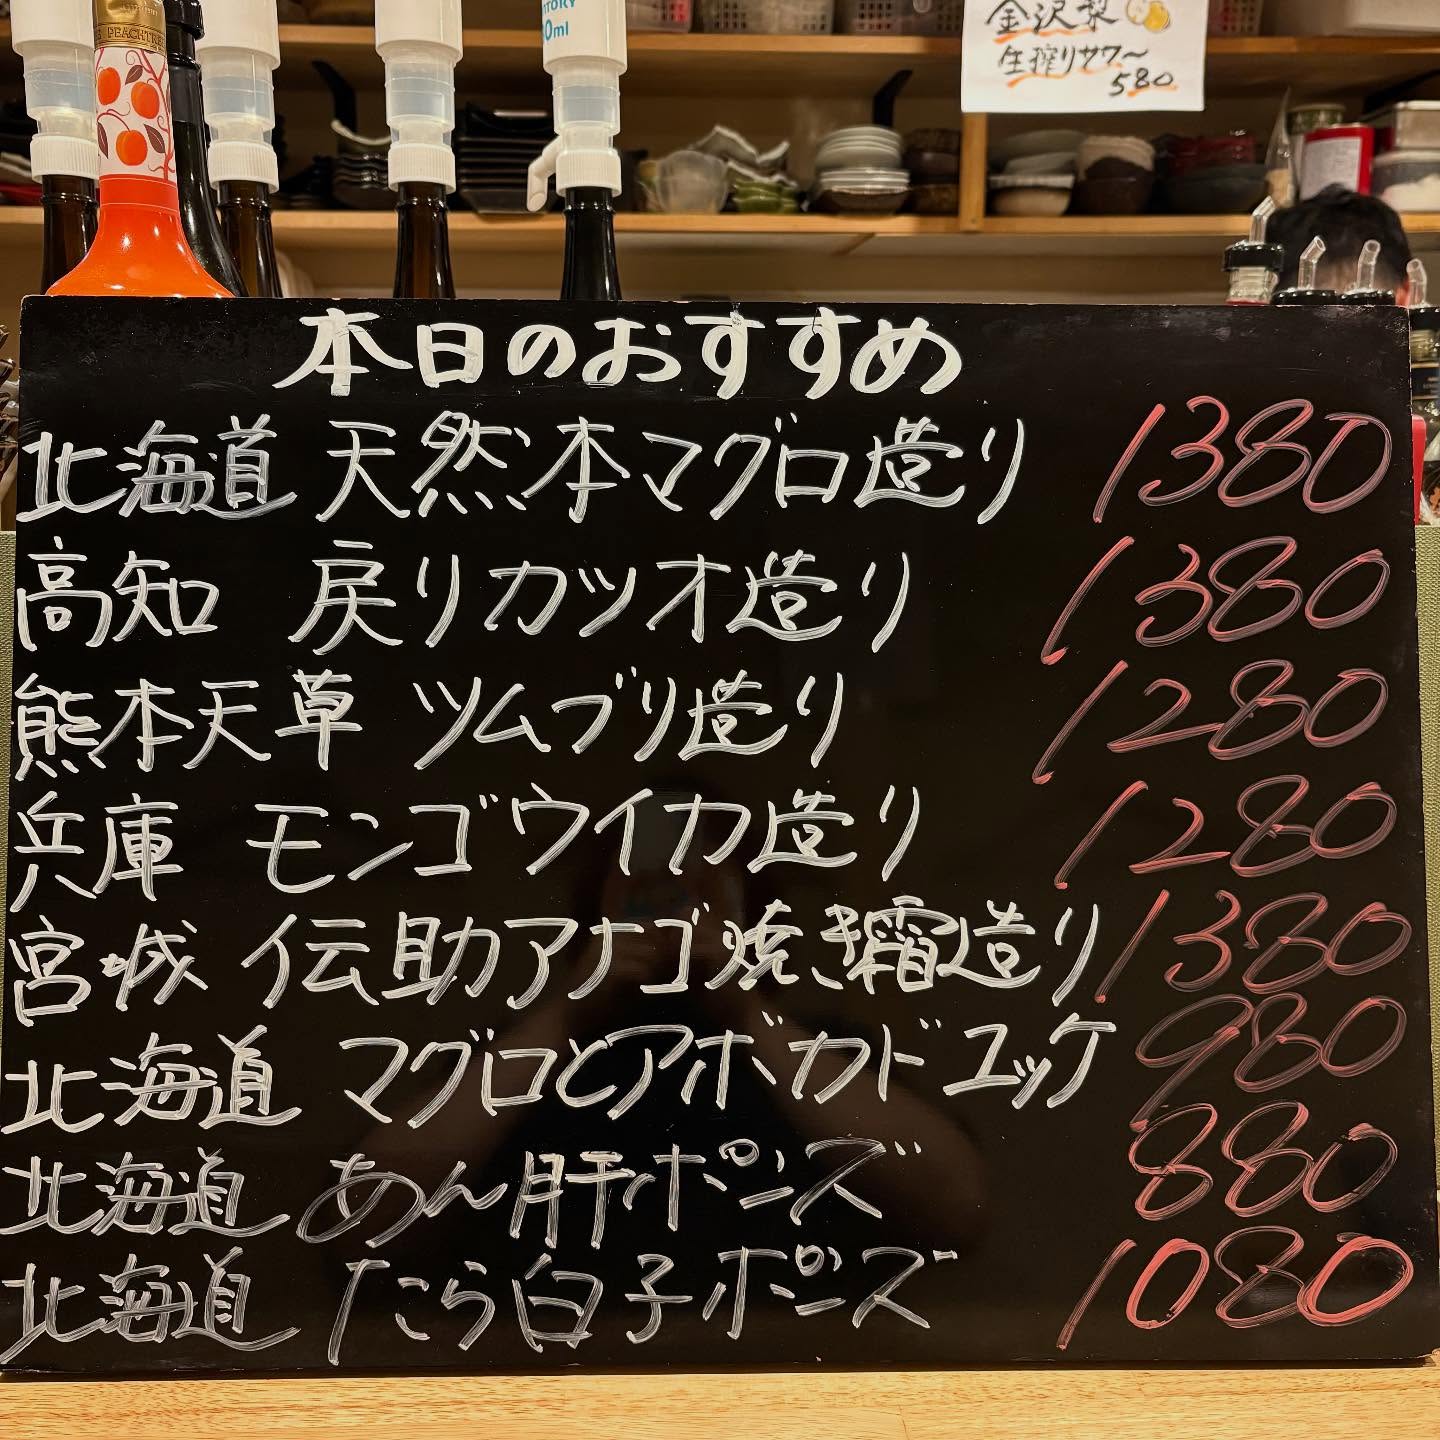 PEACHTREE
TORY
0ml
金沢梨
生搾りサワ〜
580
本日のおすすめ
北海道 天然本マグロ造り 1380
高知 戻りカツオ造り 1380
熊本天草 ツムブリ造り 1280
兵庫 モンゴウイカ造り 1280
宮城 伝助アナゴ焼き霜造り 1380
北海道 マグロとアボカドユッケ 980
北海道 あん肝ポンズ 880
北海道 たら白子ポンズ 1080